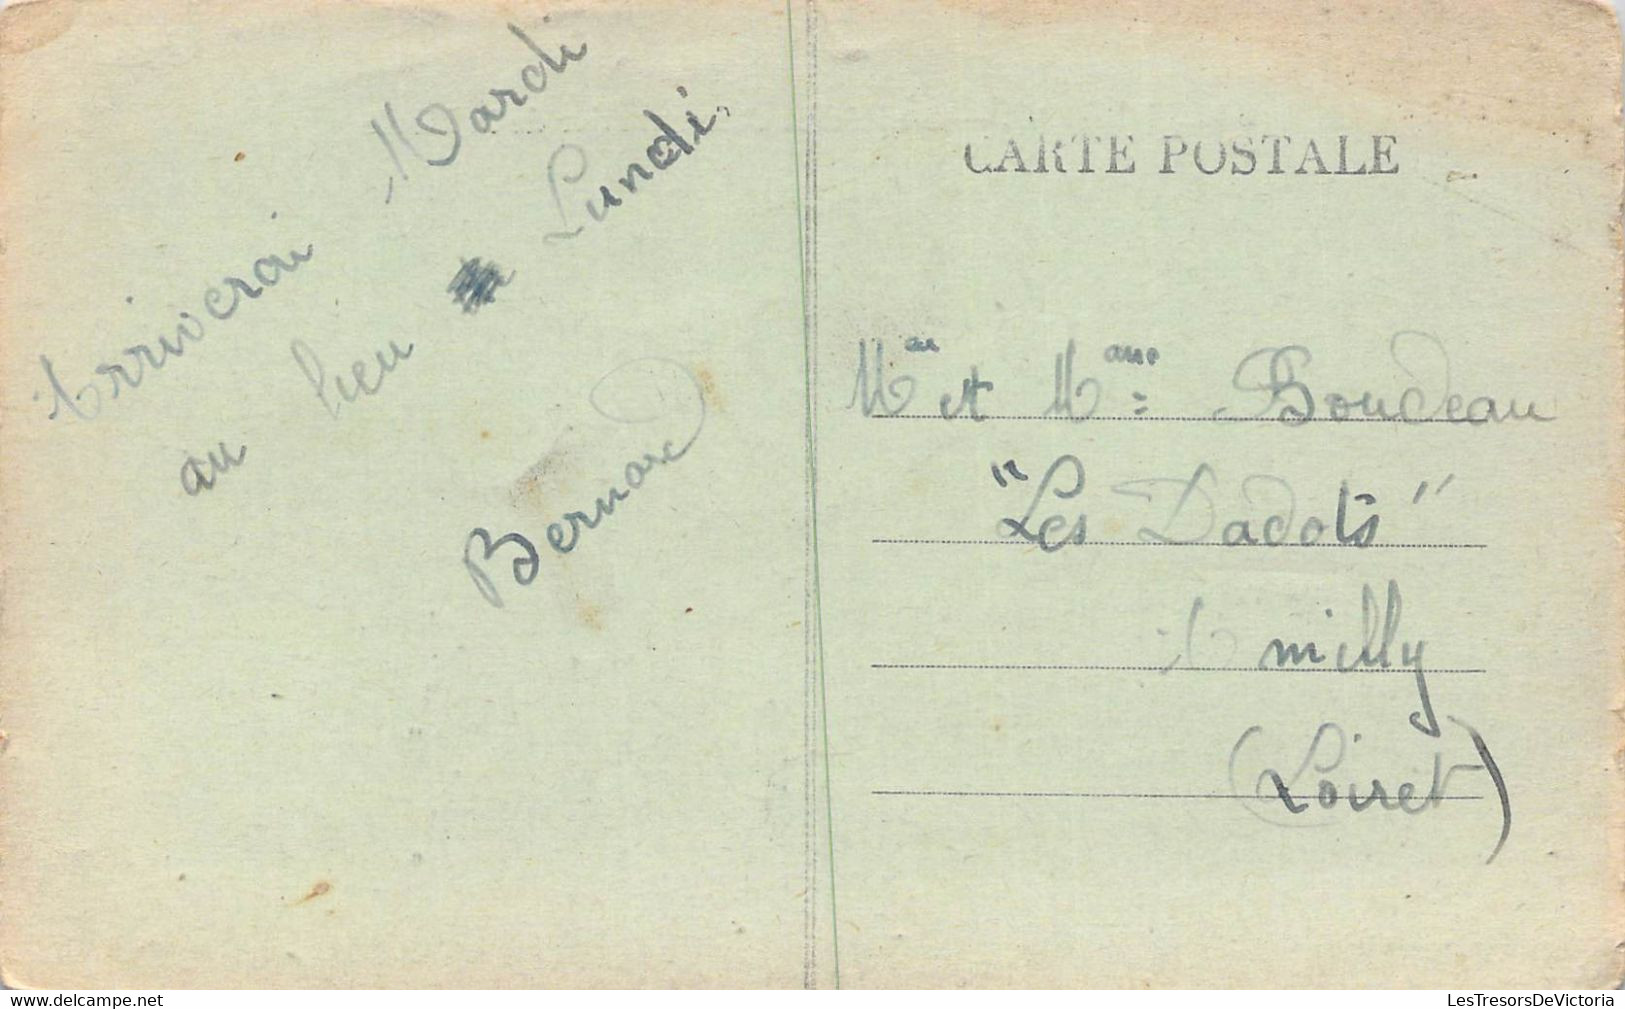 Arriverai Mardi
au lieu Lundi.
Bernard
CARTE POSTALE
et Mme Boudeau
"Les Dadots"
Amilly
(Loiret)
LesTresorsDeVictoria